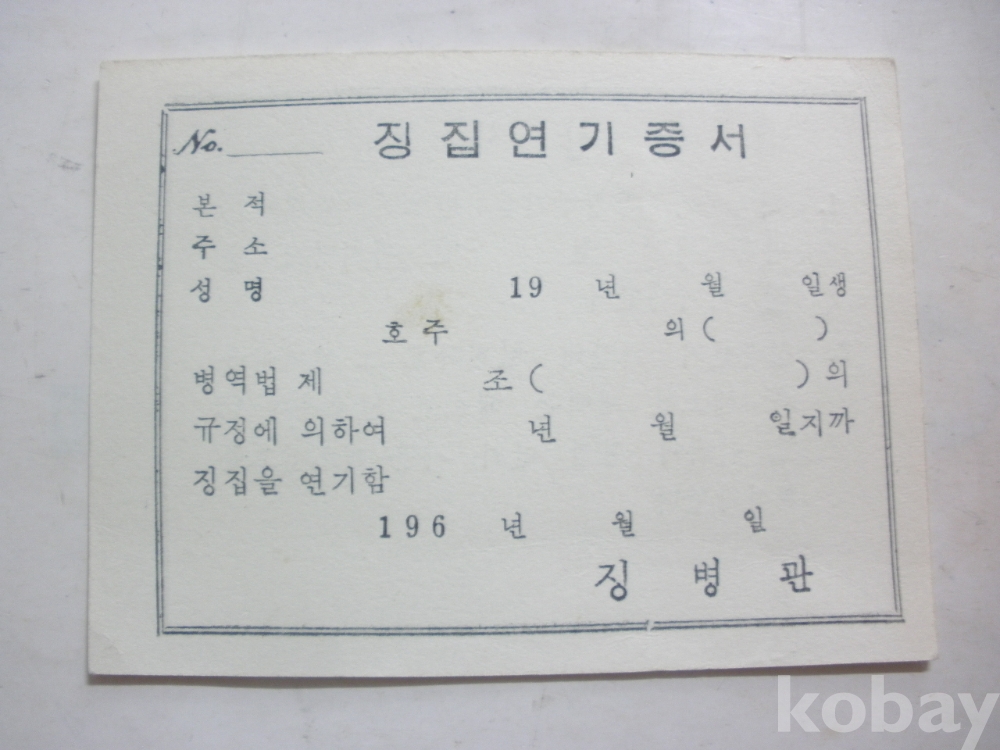 No. 징집연기증서
본 적
주 소
성 명 19 년 월 일생
호주 의 ( )
병역법 제 조 ( ) 의
규정에 의하여 년 월 일지까
징집을 연기함
196 년 월 일
징 병 관
kobay